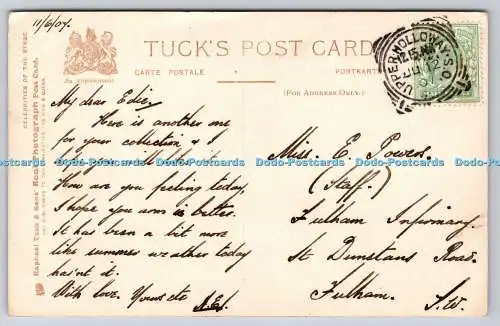 11/6/07.
TUCK'S POST CARD
CARTE POSTALE
POSTKARTE
(FOR ADDRESS ONLY.)
By Appointment
CELEBRITIES OF THE STAGE
Raphael Tuck & Sons' Real Photograph Post Card.
UPPER HOLLOWAY S.O.
12.15 PM
JU 12
My dear Edie,
Here is another one
for your collection & I
hope you will like it.
How are you feeling today,
I hope your arm is better.
It has been a bit more
like summer weather today
has'nt it.
With love. Yours etc
Miss. E. Powers.
(Staff.)
Fulham Infirmary.
St Dunstans Road.
Fulham. S.W.
Dodo-Postcards Dodo-Postcards Dodo-Postcards Dodo-Postcards Dodo-Postcards